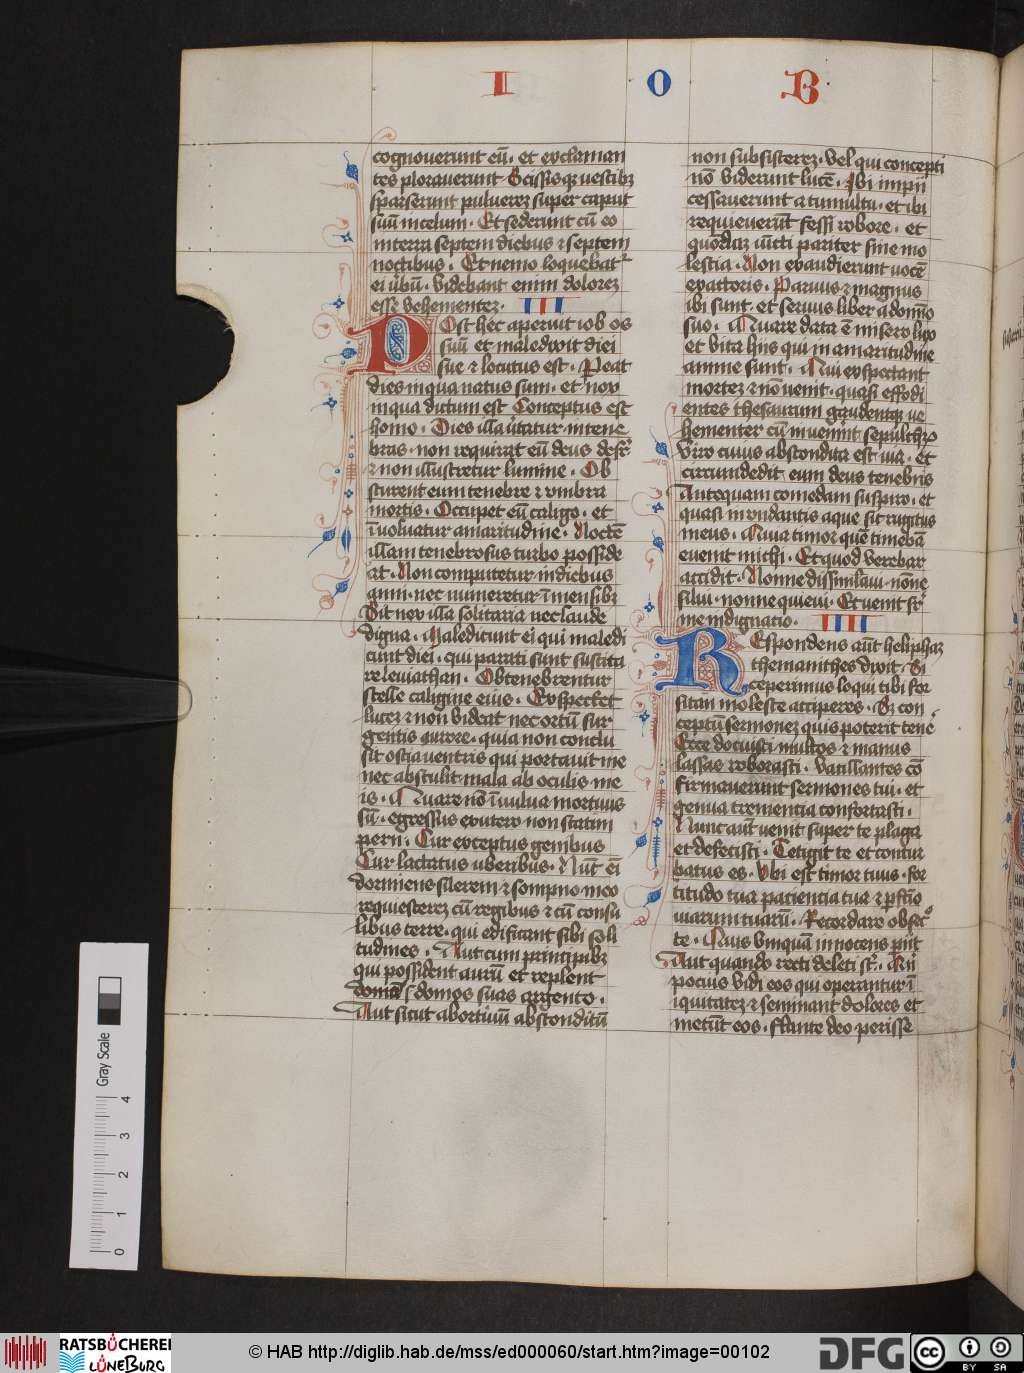 I O B
cognoverunt eū. et exclaman
tes ploraverunt Scissisqꝫ vestibꝫ
sparserunt pulverez super caput
suū in celum. Et sederunt cū eo
in terra septem diebus ⁊ septem
noctibus. Et nemo loquebatᷣ
ei v̓bū. videbant enim dolorez
esse vehementez. III
Post hec aperuit iob os
suū et maledixit diei
sue ⁊ locutus est. Peat
dies in qua natus sum. et nox
in qua dictum est Conceptus est
homo. Dies illa v̓tatur in tene
bras. non requirat eū deus desꝛ̉
⁊ non illustretur lumine. Ob
scurent eum tenebre ⁊ vmbra
mortis. Occupet eū caligo. et
īvoluatur amaritudine. Noctē
illam tenebrosus turbo posside
at. Non computetur in diebus
anni. nec numeretur ī mensibꝫ
Sit nox illa solitaria nec laude
digna. Maledicant ei qui maledi
cunt diei. qui parati sunt suscita
re leviathan. Obtenebrentur
stelle caligine eius. Exspectet
lucez ⁊ non videat nec ortū sur
gentis aurore. quia non conclu
sit ostia ventris qui portavit me
nec abstulit mala ab oculis me
is. Quare nō ī vulva mortuus
sū. egressus ex utero non statim
perii. Cur exceptus genibus
Cur lactatus uberibus. Nūc eī
dormiens silerem ⁊ sompno meo
requiescerez cū regibus ⁊ cū consu
libus terre. qui edificant sibi soli
tudines. Aut cum principibꝫ
qui possident aurū et replent
domos suas argento.
Aut sicut abortiuū absconditū
non subsisterez. vel qui concepti
nō viderunt lucē. Ibi impii
cessaverunt a tumultu. et ibi
requieverūt fessi robore. et
quōdaz iūcti pariter sine mo
lestia. Non exaudierunt vocē
exactoris. Parvus ⁊ magnus
ibi sunt. et servus liber a domīo
suo. Quare data ē misero lux
et vita hīs qui in amaritudīe
anime sunt. Qui exspectant
mortez ⁊ nō venit. quasi effodi
entes thesaurum gaudentqꝫ ve
hementer cū invenīt sepulchꝝ
Viro cuius abscondita est via. et
circumdedit eum deus tenebris
Antequam comedam suspiro. et
quasi inundantis aque sic rugitus
meus. Quia timor quē timebā
evenit michi. Et quod verebar
accidit. Nonne dissimilavi. nōne
silui. nonne quievi. Et venit sꝛ̉
me indignatio. IIII
Respondens aūt heliphaz
themanithes dixit. Si
ceperimus loqui tibi for
sitan moleste accipieres. Sz con
ceptū sermonez quis poterit tenē
Ecce docuisti multos ⁊ manus
lassas roborasti. vacillantes cō
firmaverunt sermones tui. et
genua trementia confortasti.
Nunc aūt venit super te plaga
et defecisti. Tetigit te et contur
batus es. Vbi est timor tuus. for
titudo tua paciencia tua ⁊ ꝑfcīo
viarum tuarū. Recordare obsecᷣᵒ
te. Quis vmquā innocens ꝑiit
Aut quando recti deleti sᷣt. Qn̄
pocius vidi eos qui operantur ī
iquitatez ⁊ seminant dolores et
metūt eos. flante deo perisse
Gray Scale
0 1 2 3 4
RATSBÜCHEREI
LÜNEBURG
© HAB http://diglib.hab.de/mss/ed000060/start.htm?image=00102
DFG
cc BY SA